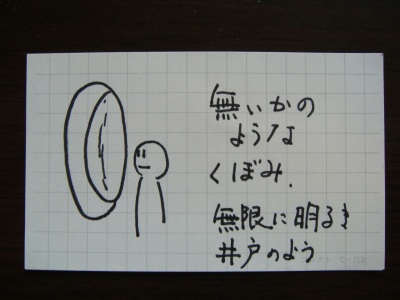 無いかの
ような
くぼみ.
無限に明るき
井戸のよう